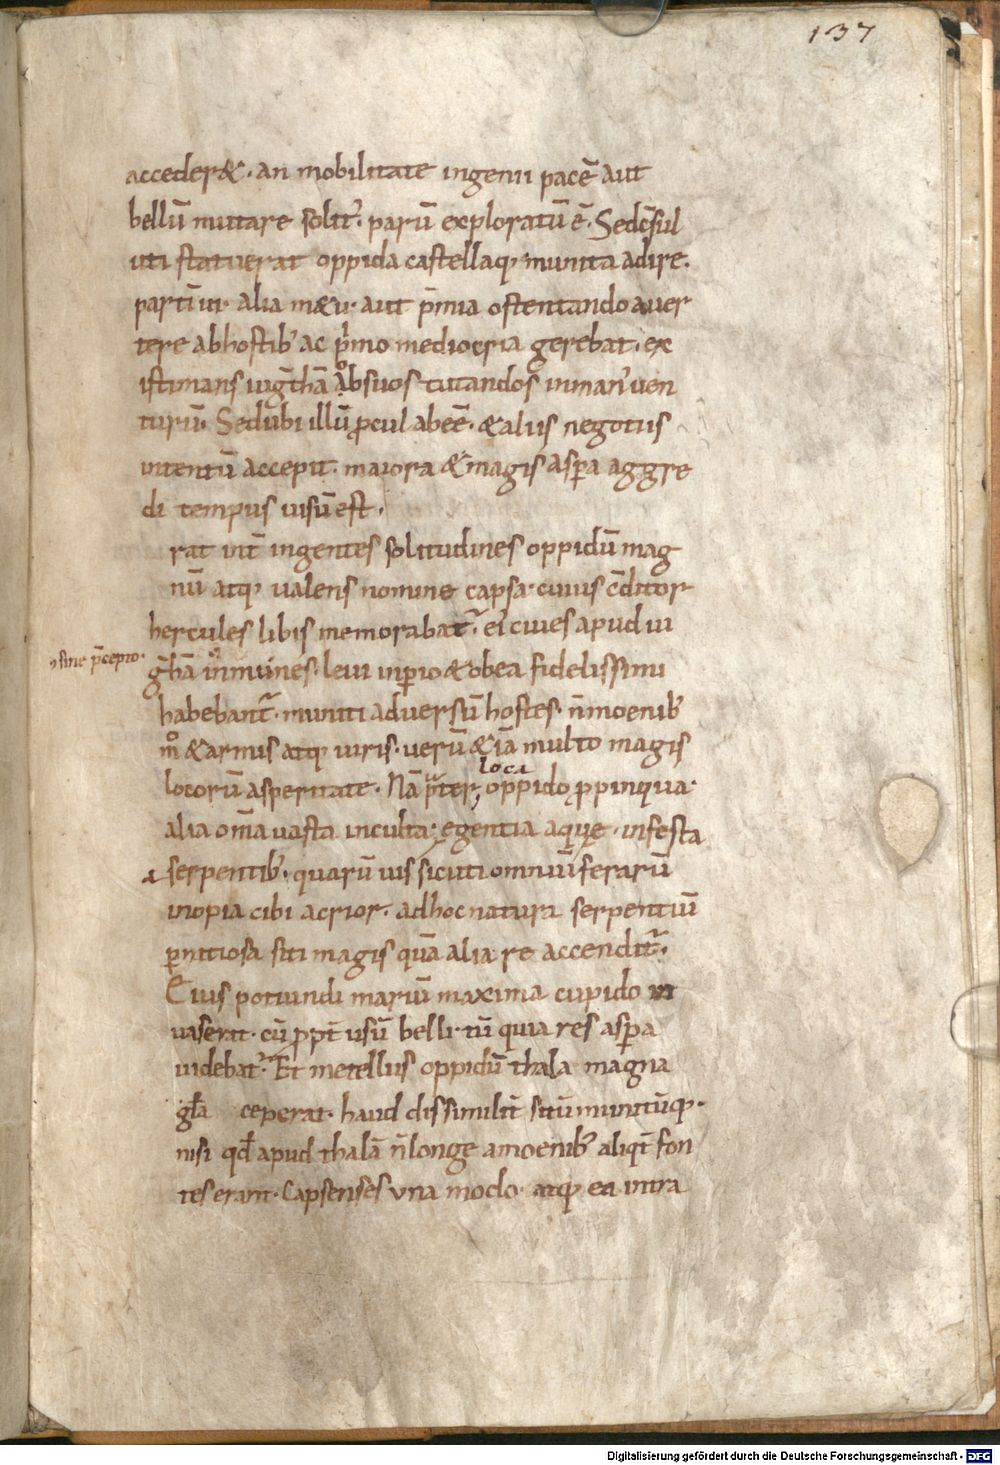 137
acceder&. an mobilitate ingenii pacē aut
bellū mutare solit᷒. parū exploratū ē. Sed c̄sul
uti statuerat oppida castellaq; munita adire.
partī ui. alia m&u. aut p̄mia ostentando auer
tere ab hostib; ac p̄mo mediocria gerebat. ex
istimans iuḡthā ob suos tutandos in man᷒ uen
turū. Sed ubi illū ꝓcul abeē. & aliis negotiis
intentū accepit. maiora & magis asꝑa aggre
di tempus uisū est.
rat int̄ ingentes solitudines oppidū mag
nū atq; ualens nomine capsa. cuius c̄ditor
hercules libis memorabat᷒. ei᷒ ciues apud iu
ḡthā inmunes. leui inꝑio & ob ea fidelissimi
sine p̄cepto.
habebant᷒. muniti aduersū hostes. n̄ moenib;
m̊ & armis atq; uiris. uerū & iā multo magis
locorū asperitate. Nā p̄ter, oppido ꝓpinqua.
loca
alia om̄a uasta inculta. egentia aquę. infesta
serpentib;. quarū uis sicuti omniū ferarū
inopia cibi acrior. adhoc natura serpentiū
ꝑnitiosa siti magis quā alia re accendit᷒.
Eius potiundi mariū maxima cupido in
uaserat. cū ꝓpt̄ usū belli. tū quia res asꝑa
uidebat᷒. Et metellus oppidū thala magna
gl̄a ceperat. haud dissimilit̄ sitū munitūq;.
nisi qđ apud thalā n̄ longe a moenib; aliqt̄ fon
tes erant. Capsenses una modo. atq; ea intra
Digitalisierung gefördert durch die Deutsche Forschungsgemeinschaft - DFG